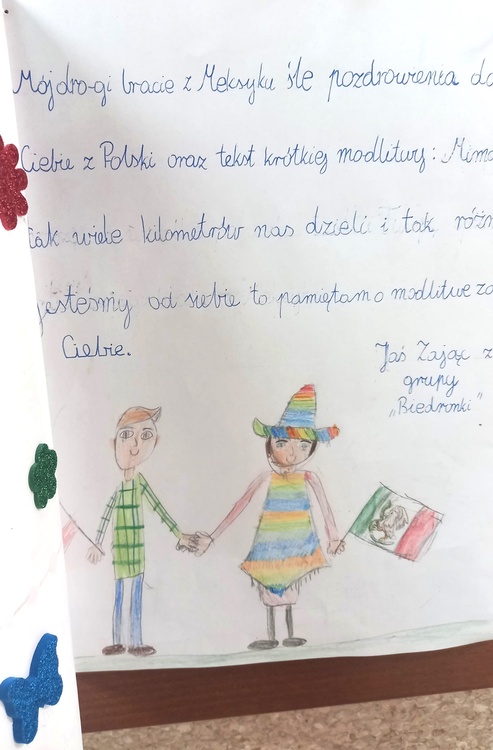 Mój drogi bracie z Meksyku śle pozdrowienia do
Ciebie z Polski oraz tekst krótkiej modlitwy: Mimo
tak wiele kilometrów nas dzieli i tak różn
jesteśmy od siebie to pamiętam o modlitwe za
Ciebie.
Jaś Zając z
grupy
„Biedronki"